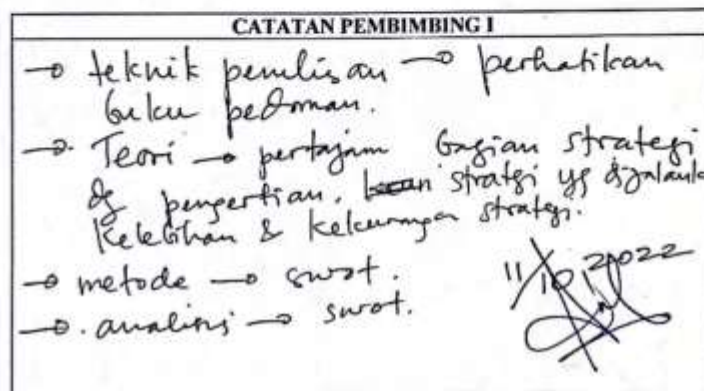 CATATAN PEMBIMBING I
→ teknik penulisan → perhatikan
buku pedoman.
→ Teori → pertajam bagian strategi
dg pengertian, strategi yg dijalank
kelebihan & kekurangan strategi.
→ metode → swot.
→ analisis → swot.
11/10 2022